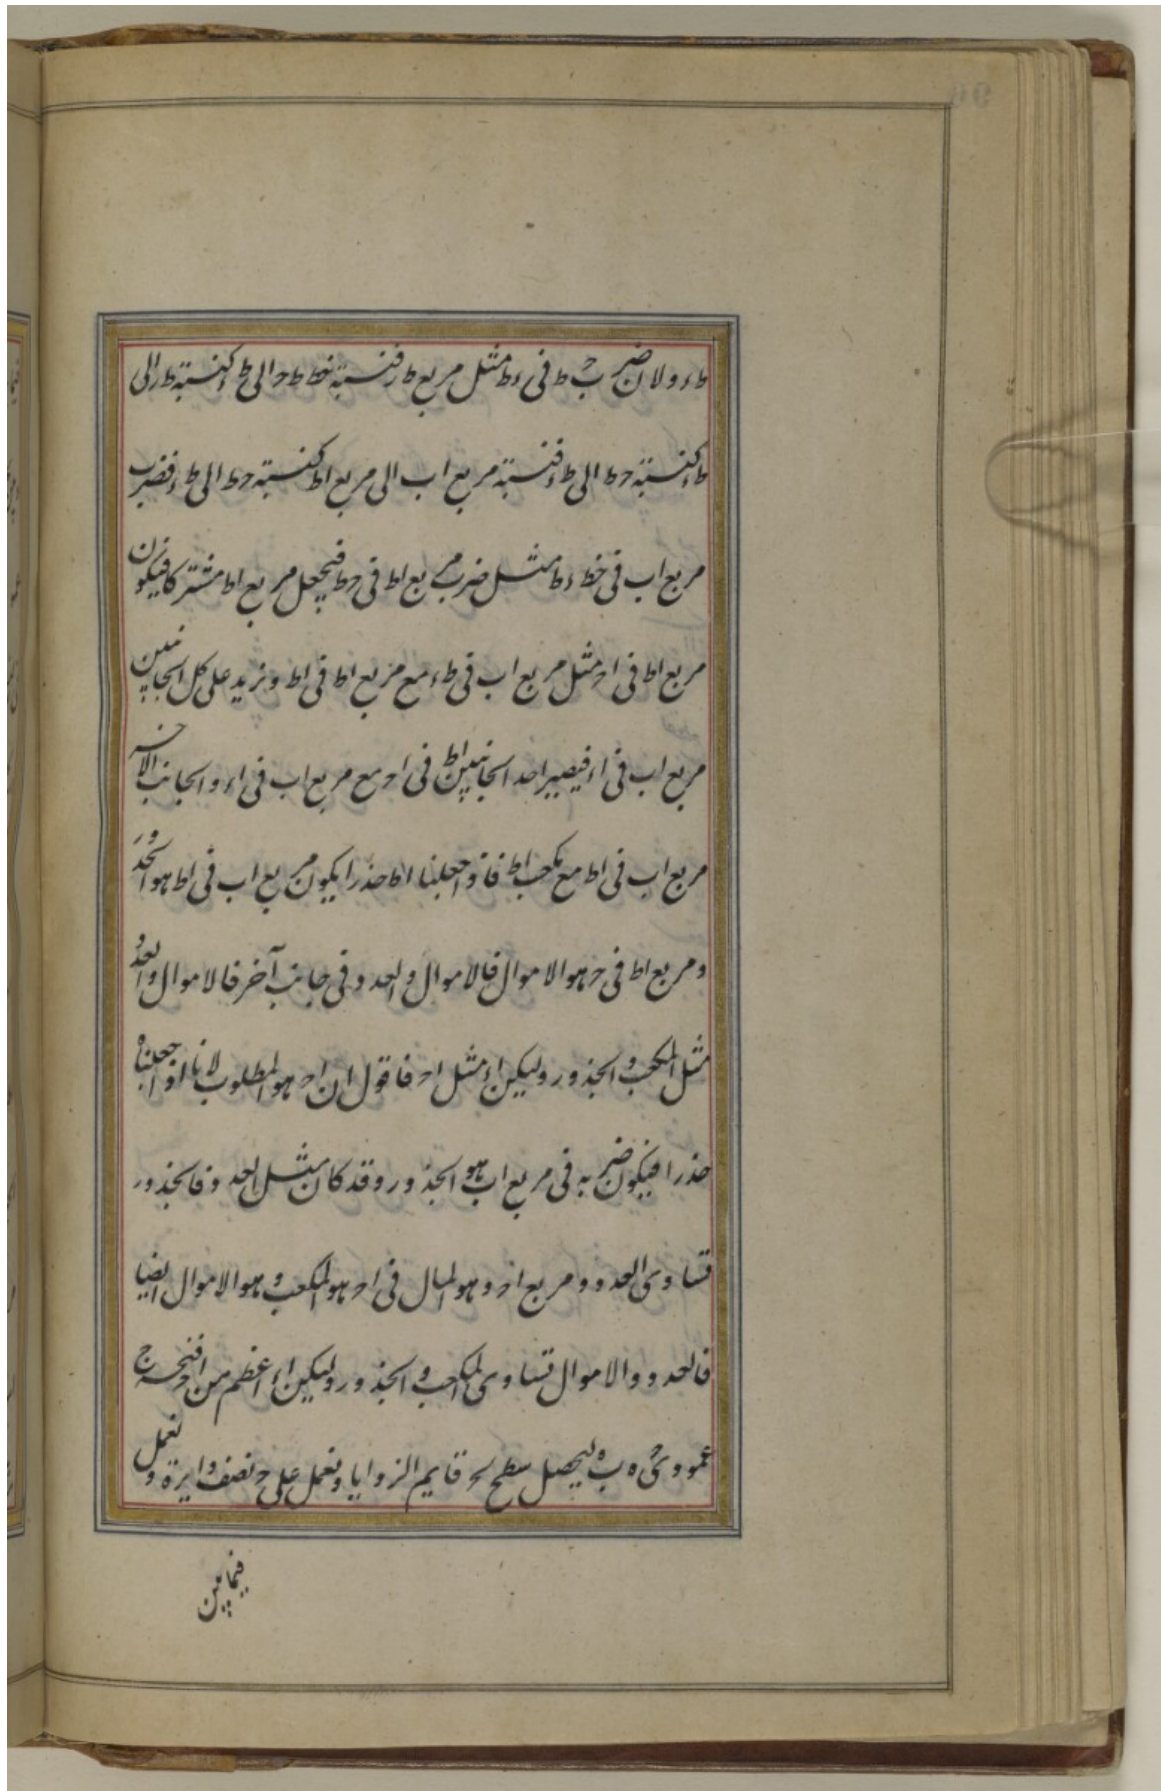 طء ولان ضرب حـ ط فى ءط مثل مربع طز فنسبة خط طحـ الى طء كنسبة طز الى
طء كنسبة حط الى طء فنسبة مربع اب الى مربع اط كنسبة حط الى طء فضرب
مربع اب فى خط ءط مثل ضرب مربع اط فى حط فيجعل مربع اط مشتركا فيكون
مربع اط فى احـ مثل مربع اب فى طء مع مربع اط فى اط ونزيد على كل الجانبين
مربع اب فى اء فيصير احد الجانبين اط فى احـ مع مربع اب فى اء والجانب الاخر
مربع اب فى اط مع مكعب اط فاذا جعلنا اط جذرا يكون مربع اب فى اط هو الجذور
ومربع اط فى حـ هو الاموال فالاموال والعدد فى جانب آخر فالاموال والعدد
مثل المكعب والجذور وليكن اء مثل احـ فاقول ان احـ هو المطلوب لانا اذا جعلناه
جذرا فيكون ضربه فى مربع اب هو الجذور وقد كان مثل العدد فالجذور
تساوى العدد ومربع احـ وهو المال فى احـ هو المكعب وهو الاموال ايضا
فالعدد والاموال تساوى المكعب والجذور وليكن اء اعظم من احـ فنخرج
عمودى حـ ه ب ه ليحصل سطح قايم الزوايا ونعمل على حـ نصف دايرة ونعمل
فيما بين